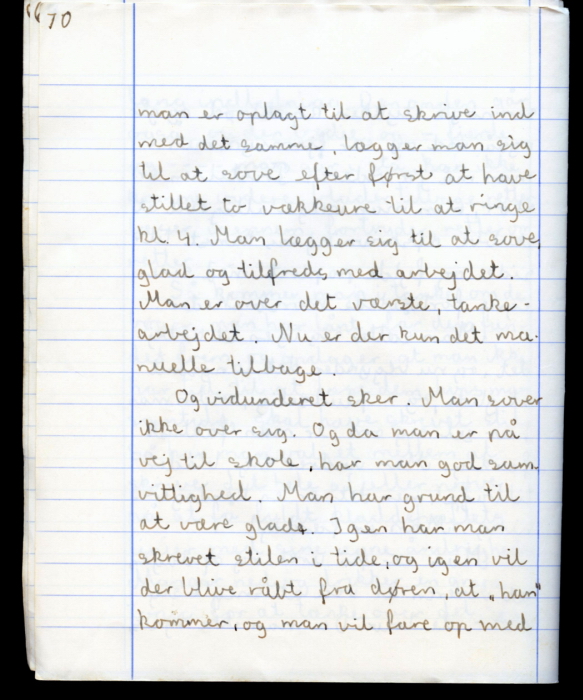 70
man er oplagt til at skrive ind
med det samme, lægger man sig
til at sove efter først at have
stillet to vækkeure til at ringe
kl. 4. Man lægger sig til at sove,
glad og tilfreds med arbejdet.
Man er over det værste, tanke-
arbejdet. Nu er der kun det ma-
nuelle tilbage.
Og vidunderet sker. Man sover
ikke over sig. Og da man er på
vej til skole, har man god sam-
vittighed. Man har grund til
at være glad. Igen har man
skrevet stilen i tide, og igen vil
der blive råbt fra døren, at „han"
kommer, og man vil fare op med